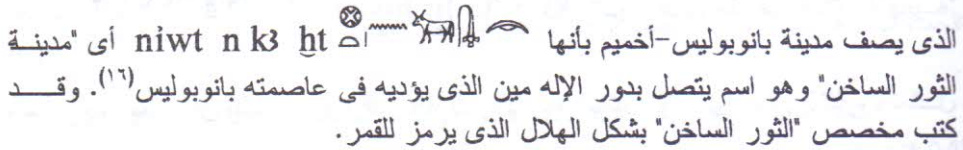 الذى يصف مدينة بانوبوليس-أخميم بأنها niwt n k3 ẖt أى "مدينة
الثور الساخن" وهو اسم يتصل بدور الإله مين الذى يؤديه فى عاصمته بانوبوليس(١٦). وقد
كتب مخصص "الثور الساخن" بشكل الهلال الذى يرمز للقمر.